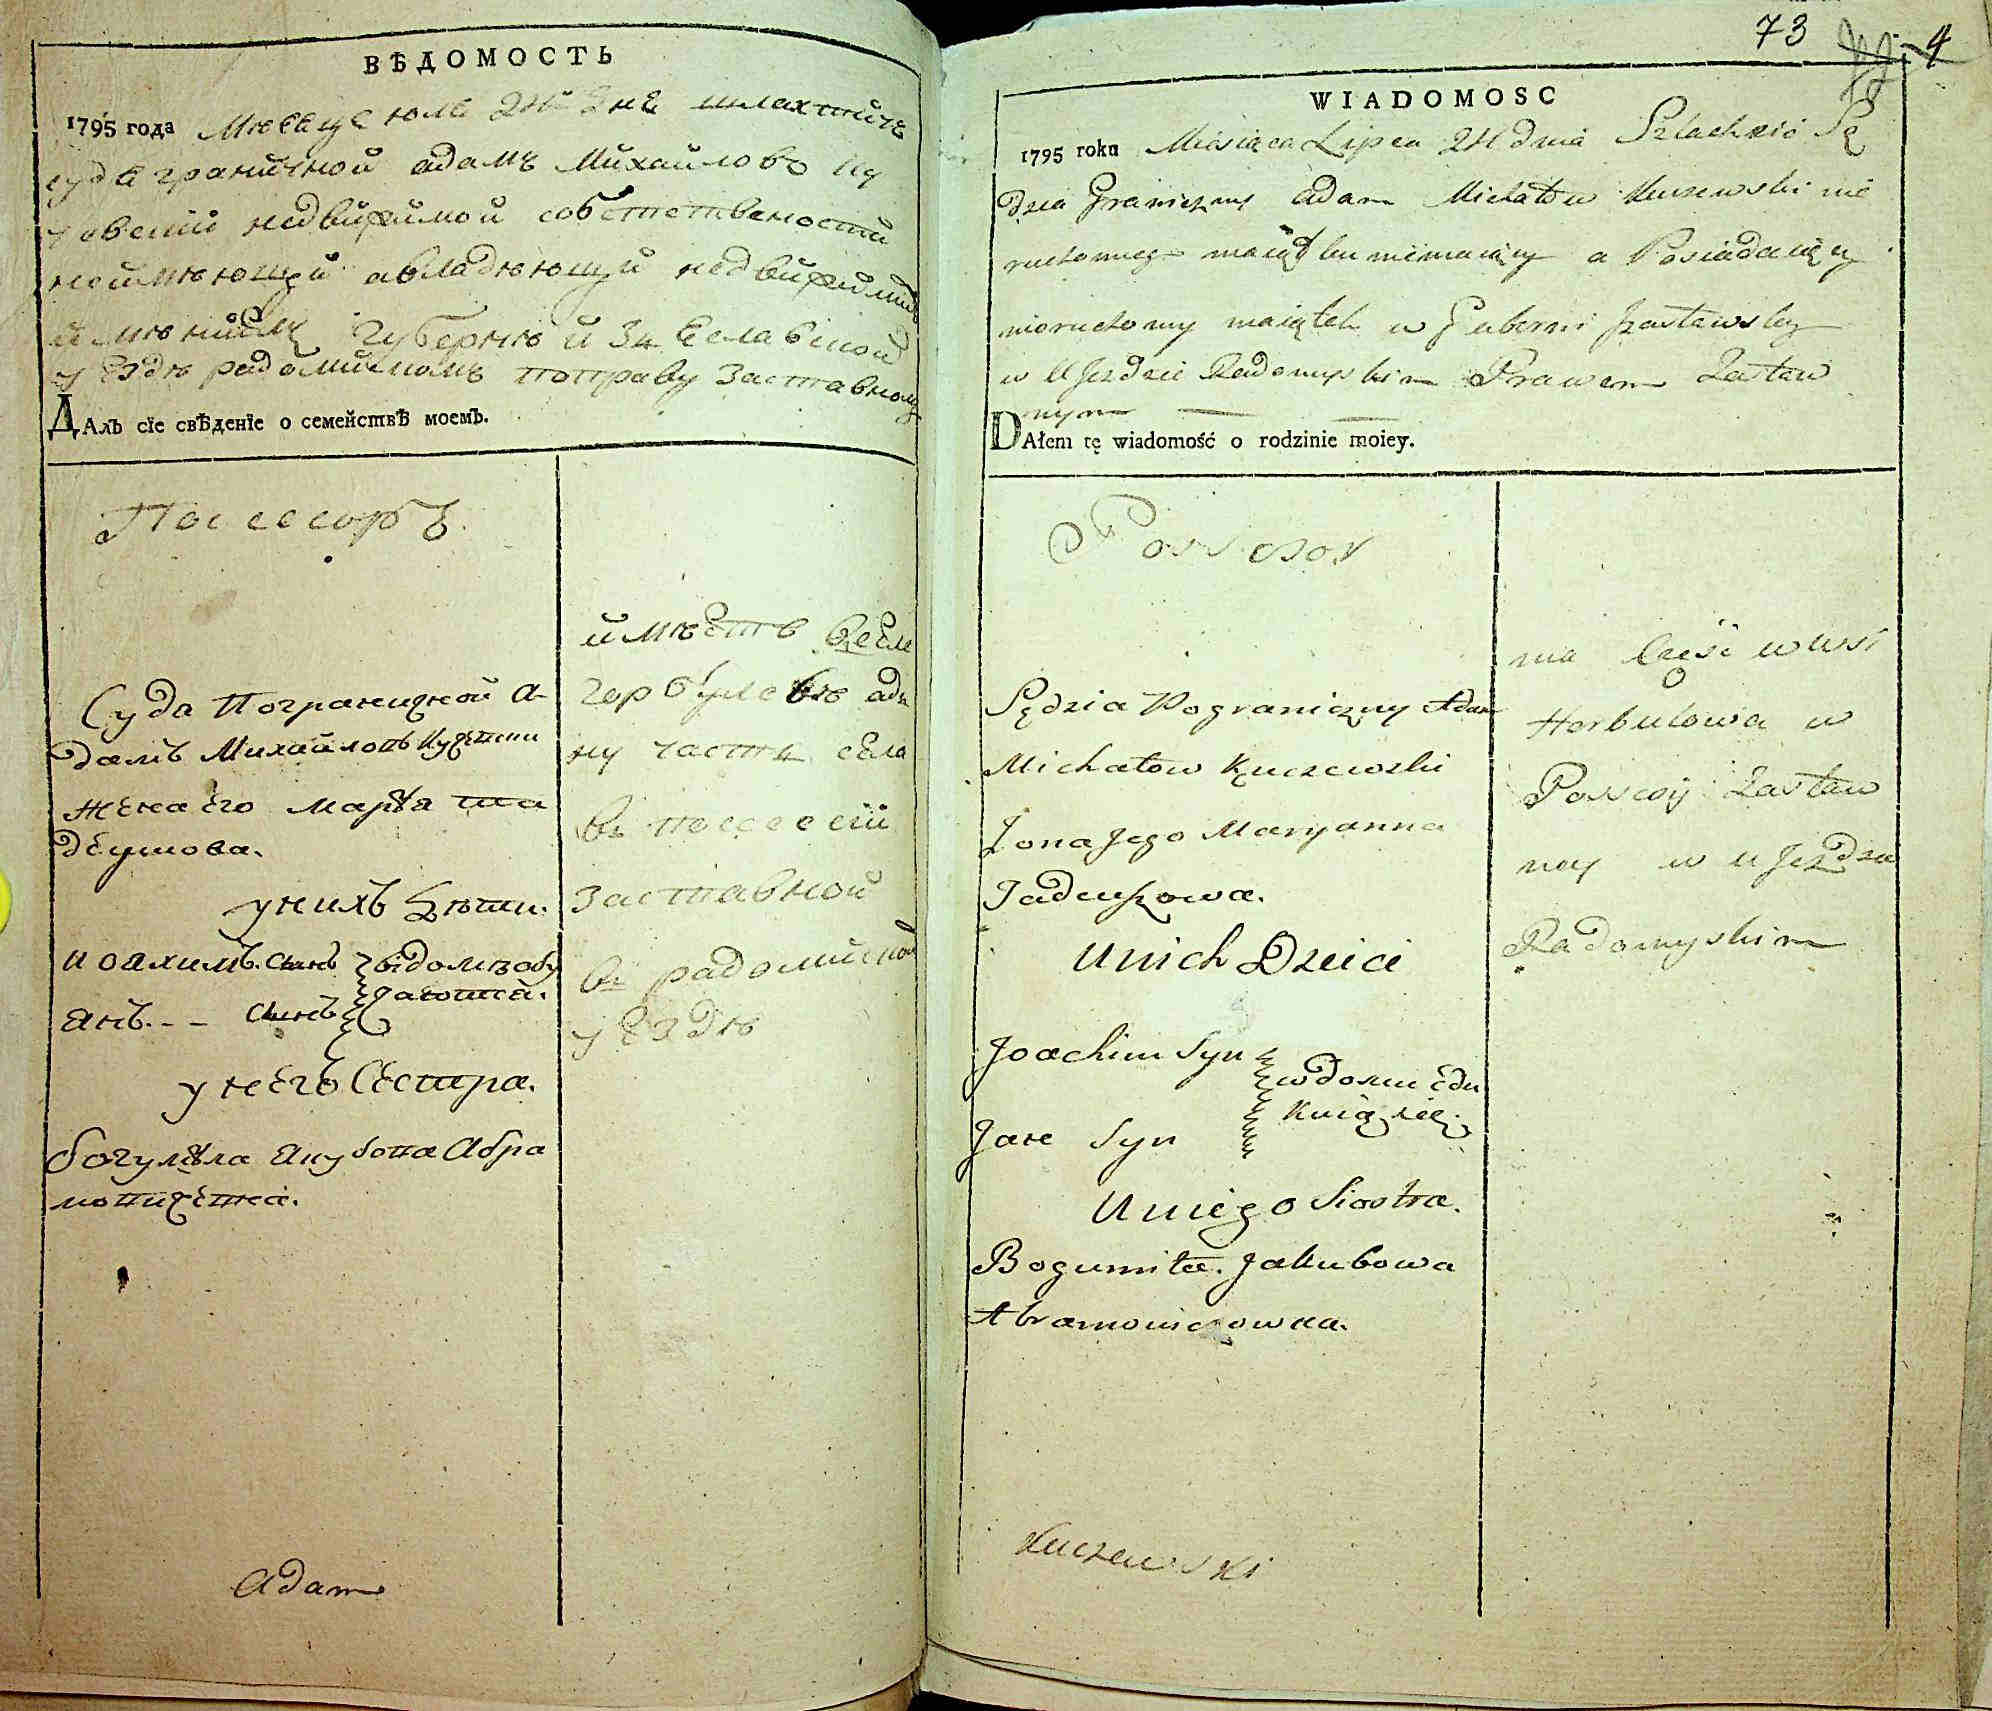 ВѢДОМОСТЬ
1795 года Мѣсяца июля 24 дня шляхтичъ
суда граничной адамъ Михайловъ Ку
чевский недвижимой собственности
неимѣющий авладѣющий недвижимымъ
имѣниемъ Губерніи Изяславской
уездѣ радомисломъ поправу заставному
ДАлъ сїе свѣденїе о семействѣ моемъ.
Поссесоръ.
Суда Пограничной а-
дамъ Михайловъ Кучевски
жена его марꙗ та
деушова.
унихъ Дѣти.
иоахимъ. Сынъ вдомѣ обу
чаются.
Янъ. - - Сынъ
унего Сестра.
богумила Якубова Абра
мовичовна.
имѣетъ вселе
горбулевѣ адъ
ну часть села
въ поссесіи
заставной
въ радомиской
уездѣ
Adam
73
4
WIADOMOSC
1795 roku Miesiąca Lipca 24 dnia Szlachcic Sę
dzia Graniczny Adam Michałow Kuczewski nie
ruchomego maiątku niemaiący a Posiadaiący
nieruchomy maiątek w Guberni Izasławskiey
w Ujezdzie Radomyskim Prawem Zastaw
nym
DAłem tę wiadomość o rodzinie moiey.
Possessor
Sędzia Pograniczny Adam
Michałow Kuczewski
Żona Jego Maryanna
Tadeuszowa.
U nich Dzieci
Joachim Syn w domu Edu
kuią się.
Jan Syn
U niego Siostra.
Bogumiła. Jakubowa
Abramowiczowna.
ma Część w wsi
Horbulowa w
Possesyi Zastaw
ney w uJezdzie
Radomyskim
Kuczewski